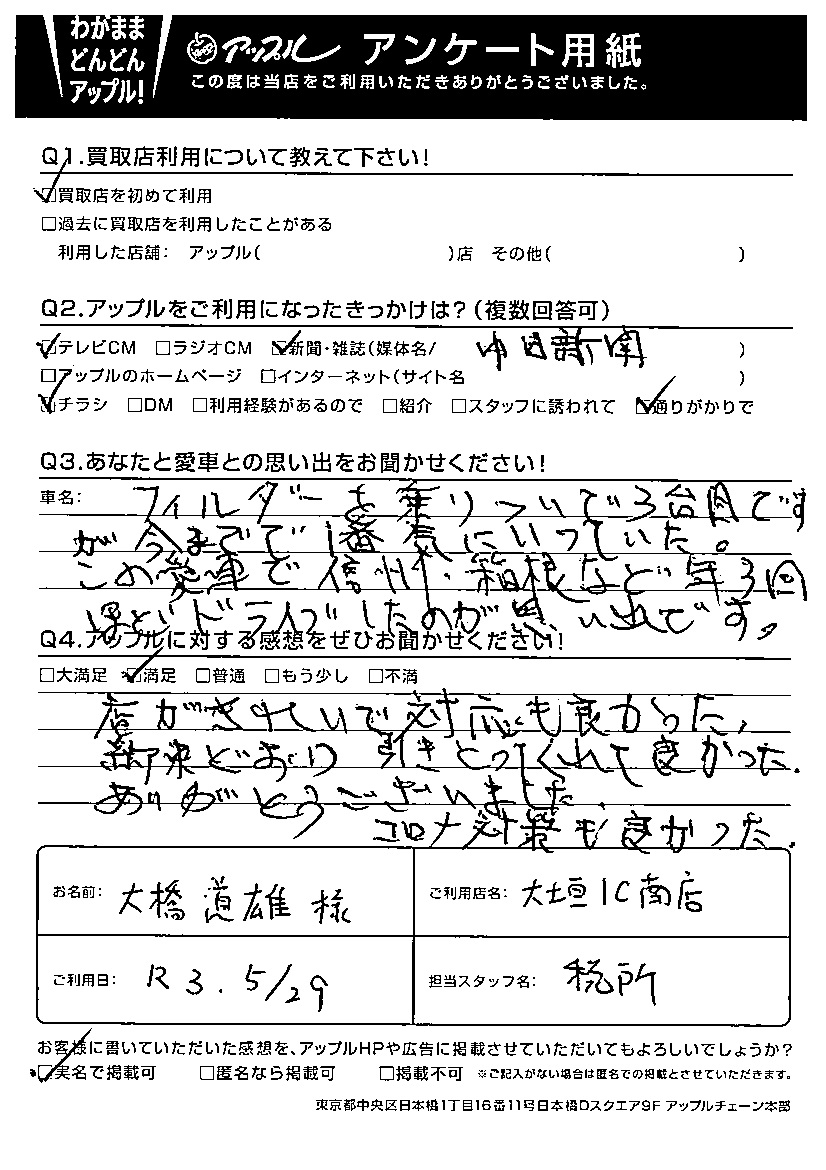 わがまま
どんどん
アップル!
アップル アンケート用紙
この度は当店をご利用いただきありがとうございました。
Q1.買取店利用について教えて下さい!
☑買取店を初めて利用
□過去に買取店を利用したことがある
利用した店舗: アップル( )店 その他( )
Q2.アップルをご利用になったきっかけは?(複数回答可)
☑テレビCM □ラジオCM ☑新聞・雑誌(媒体名/ 中日新聞 )
□アップルのホームページ □インターネット(サイト名 )
☑チラシ □DM □利用経験があるので □紹介 □スタッフに誘われて ☑通りがかりで
Q3.あなたと愛車との思い出をお聞かせください!
車名: フィルダーを乗りついで3台目です
が今までで1番気にいっていた。
この愛車で信州・箱根など年3回
ほどドライブしたのが思い出です。
Q4.アップルに対する感想をぜひお聞かせください!
□大満足 ☑満足 □普通 □もう少し □不満
店がきれいで対応も良かった、
約束どおり引きとってくれて良かった.
ありがとうございました.
コロナ対策も良かった.
お名前: 大橋道雄 様 ご利用店名: 大垣IC南店
ご利用日: R3.5/29 担当スタッフ名: 税所
お客様に書いていただいた感想を、アップルHPや広告に掲載させていただいてもよろしいでしょうか?
☑実名で掲載可 □匿名なら掲載可 □掲載不可 ※ご記入がない場合は匿名での掲載とさせていただきます。
東京都中央区日本橋1丁目16番11号日本橋Dスクエア9F アップルチェーン本部